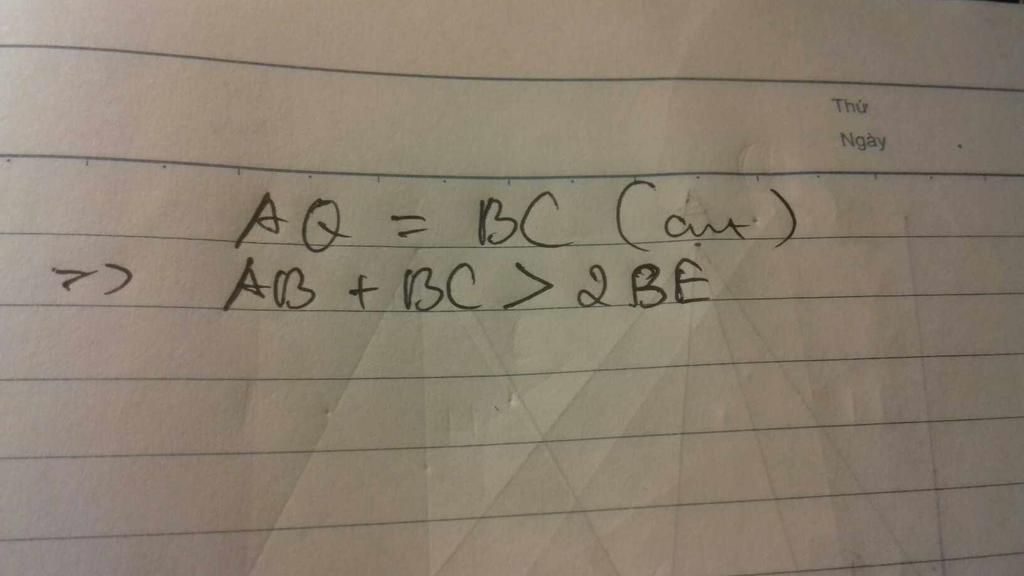 Thứ
Ngày
AQ = BC (cmt)
=> AB + BC > 2BE